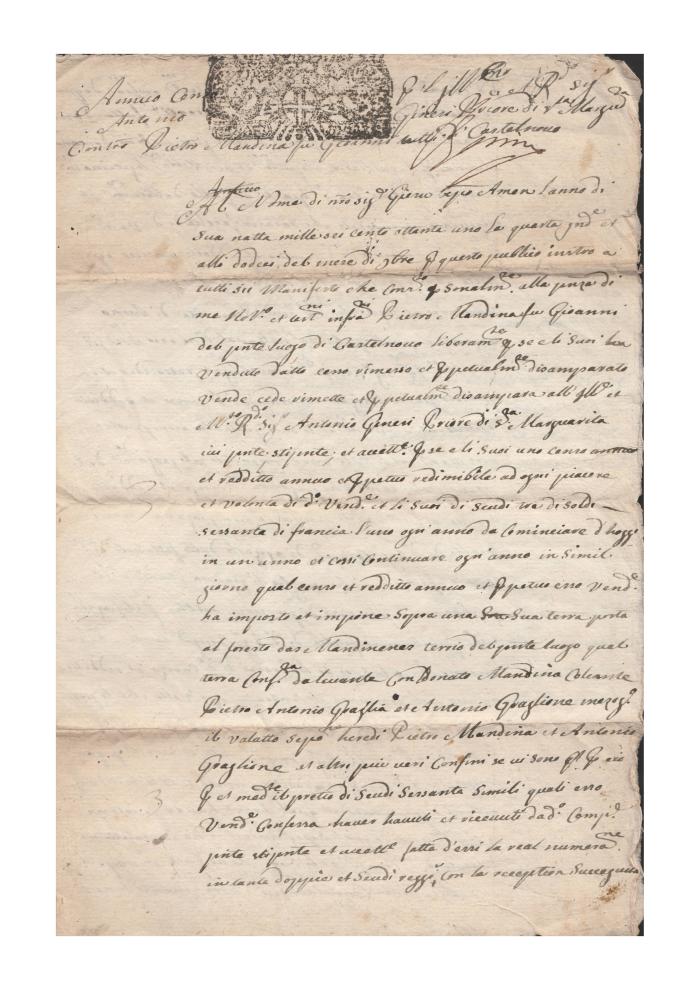 Annuo Cens
Antonio Generi Priore di Sta Margta
Contro Pietro Mandina fu Gioanni di Castelnovo
Al Nome di nro sigr Giesu Xpo Amen l'anno di
sua natta mille sei cento ottanta uno la quarta indne et
alli dodeci del mese di xbre p questo publico instro a
tutti sii Manifesto che Constto psonalmte alla pnza di
me Notro et testni infrati Pietro Mandina fu Gioanni
del pnte luogo di Castelnovo liberamte p se e li Suoi ha
venduto datto cesso rimesso et ppetualmte disamparato
vende cede rimette et ppetualmte disampara all' Illre et
Mto Rdo Sigr Antonio Generi Priore di Sta Margarita
ivi pnte stipnte, et acettte p se e li Suoi uno censo annuo
et redditto annuo et ppetuo redimibile ad ogni piacere
et volonta di do Vendre et li Suoi di Scudi tre di soldi
sessanta di francia l'uno ogn'anno da cominciare d'hoggi
in un anno et cossi continuare ogn'anno in simil
giorno qual censo et redditto annuo et ppetuo esso Vendre
ha imposto et impone sopra una Sua terra posta
al foresto das Mandinenas terrio del pnte luogo qual
terra Confta da levante Con Donato Mandina Coherente
Pietro Antonio Graglia et Antonio Graglione mezogo
il valatto sepo heredi Pietro Mandina et Antonio
Graglione et altri piu veri Confini se vi sono
p et medte il pretio di Scudi Sessanta Simili quali esso
Vendre Confessa haver havuti et ricevuti da do Compre
pnte stipnte et acettte fatta d'essi la real numerane
in tante doppie et Scudi, Con la reception Susseguita